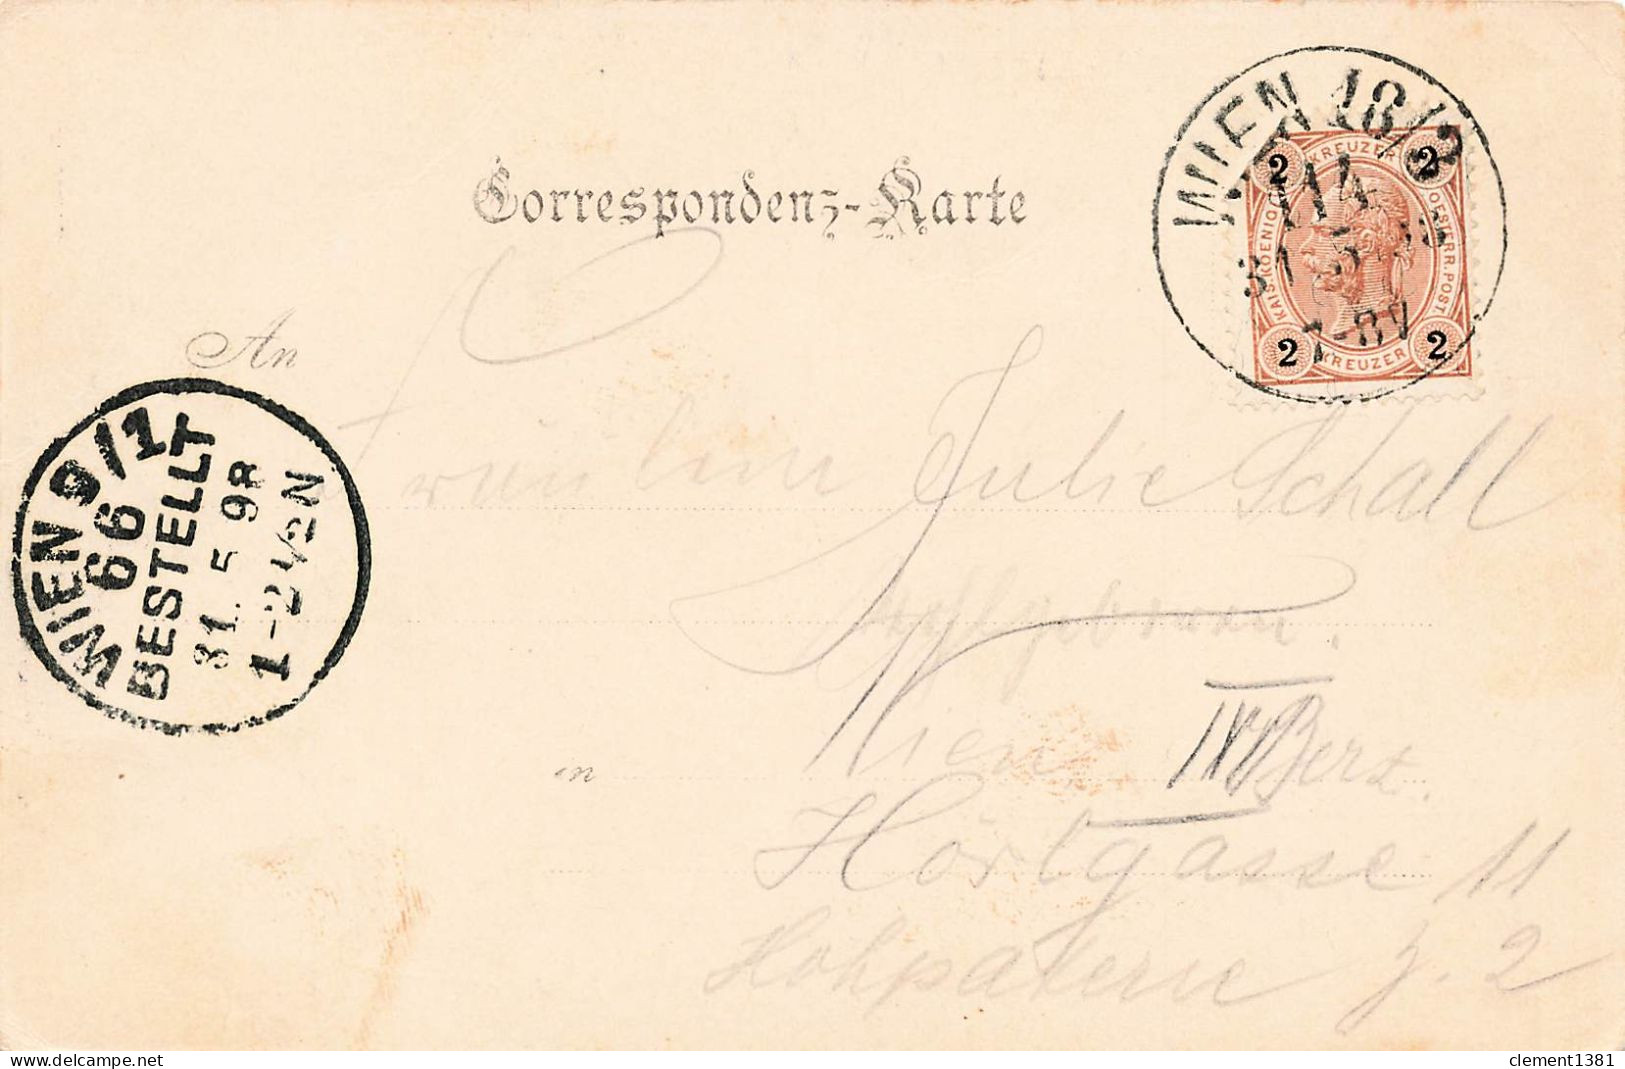 Correspondenz-Karte
WIEN 18/2
114
31 5 98
KREUZER
KAIS.KOENIGL. OESTERR.POST
2 2
2 2
KREUZER
An
Fräulein Julie Schall
WIEN 9/1
66
BESTELLT
31. 5 98
1-2½N
Wohlgeboren.
in Wien Bez.
Hörlgasse 11
Hohpaterre 2
delcampe.net clement1381